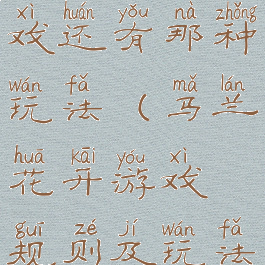 xì huán yǒu nà zhǒng
戏还有那种
wán fǎ mǎ lán
玩法（马兰
huā kāi yóu xì
花开游戏
guī zé jí wán fǎ
规则及玩法